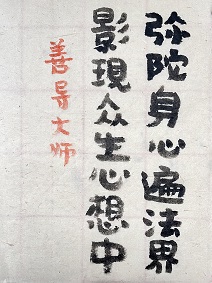 弥陀身心遍法界
影現众生心想中
善导大师